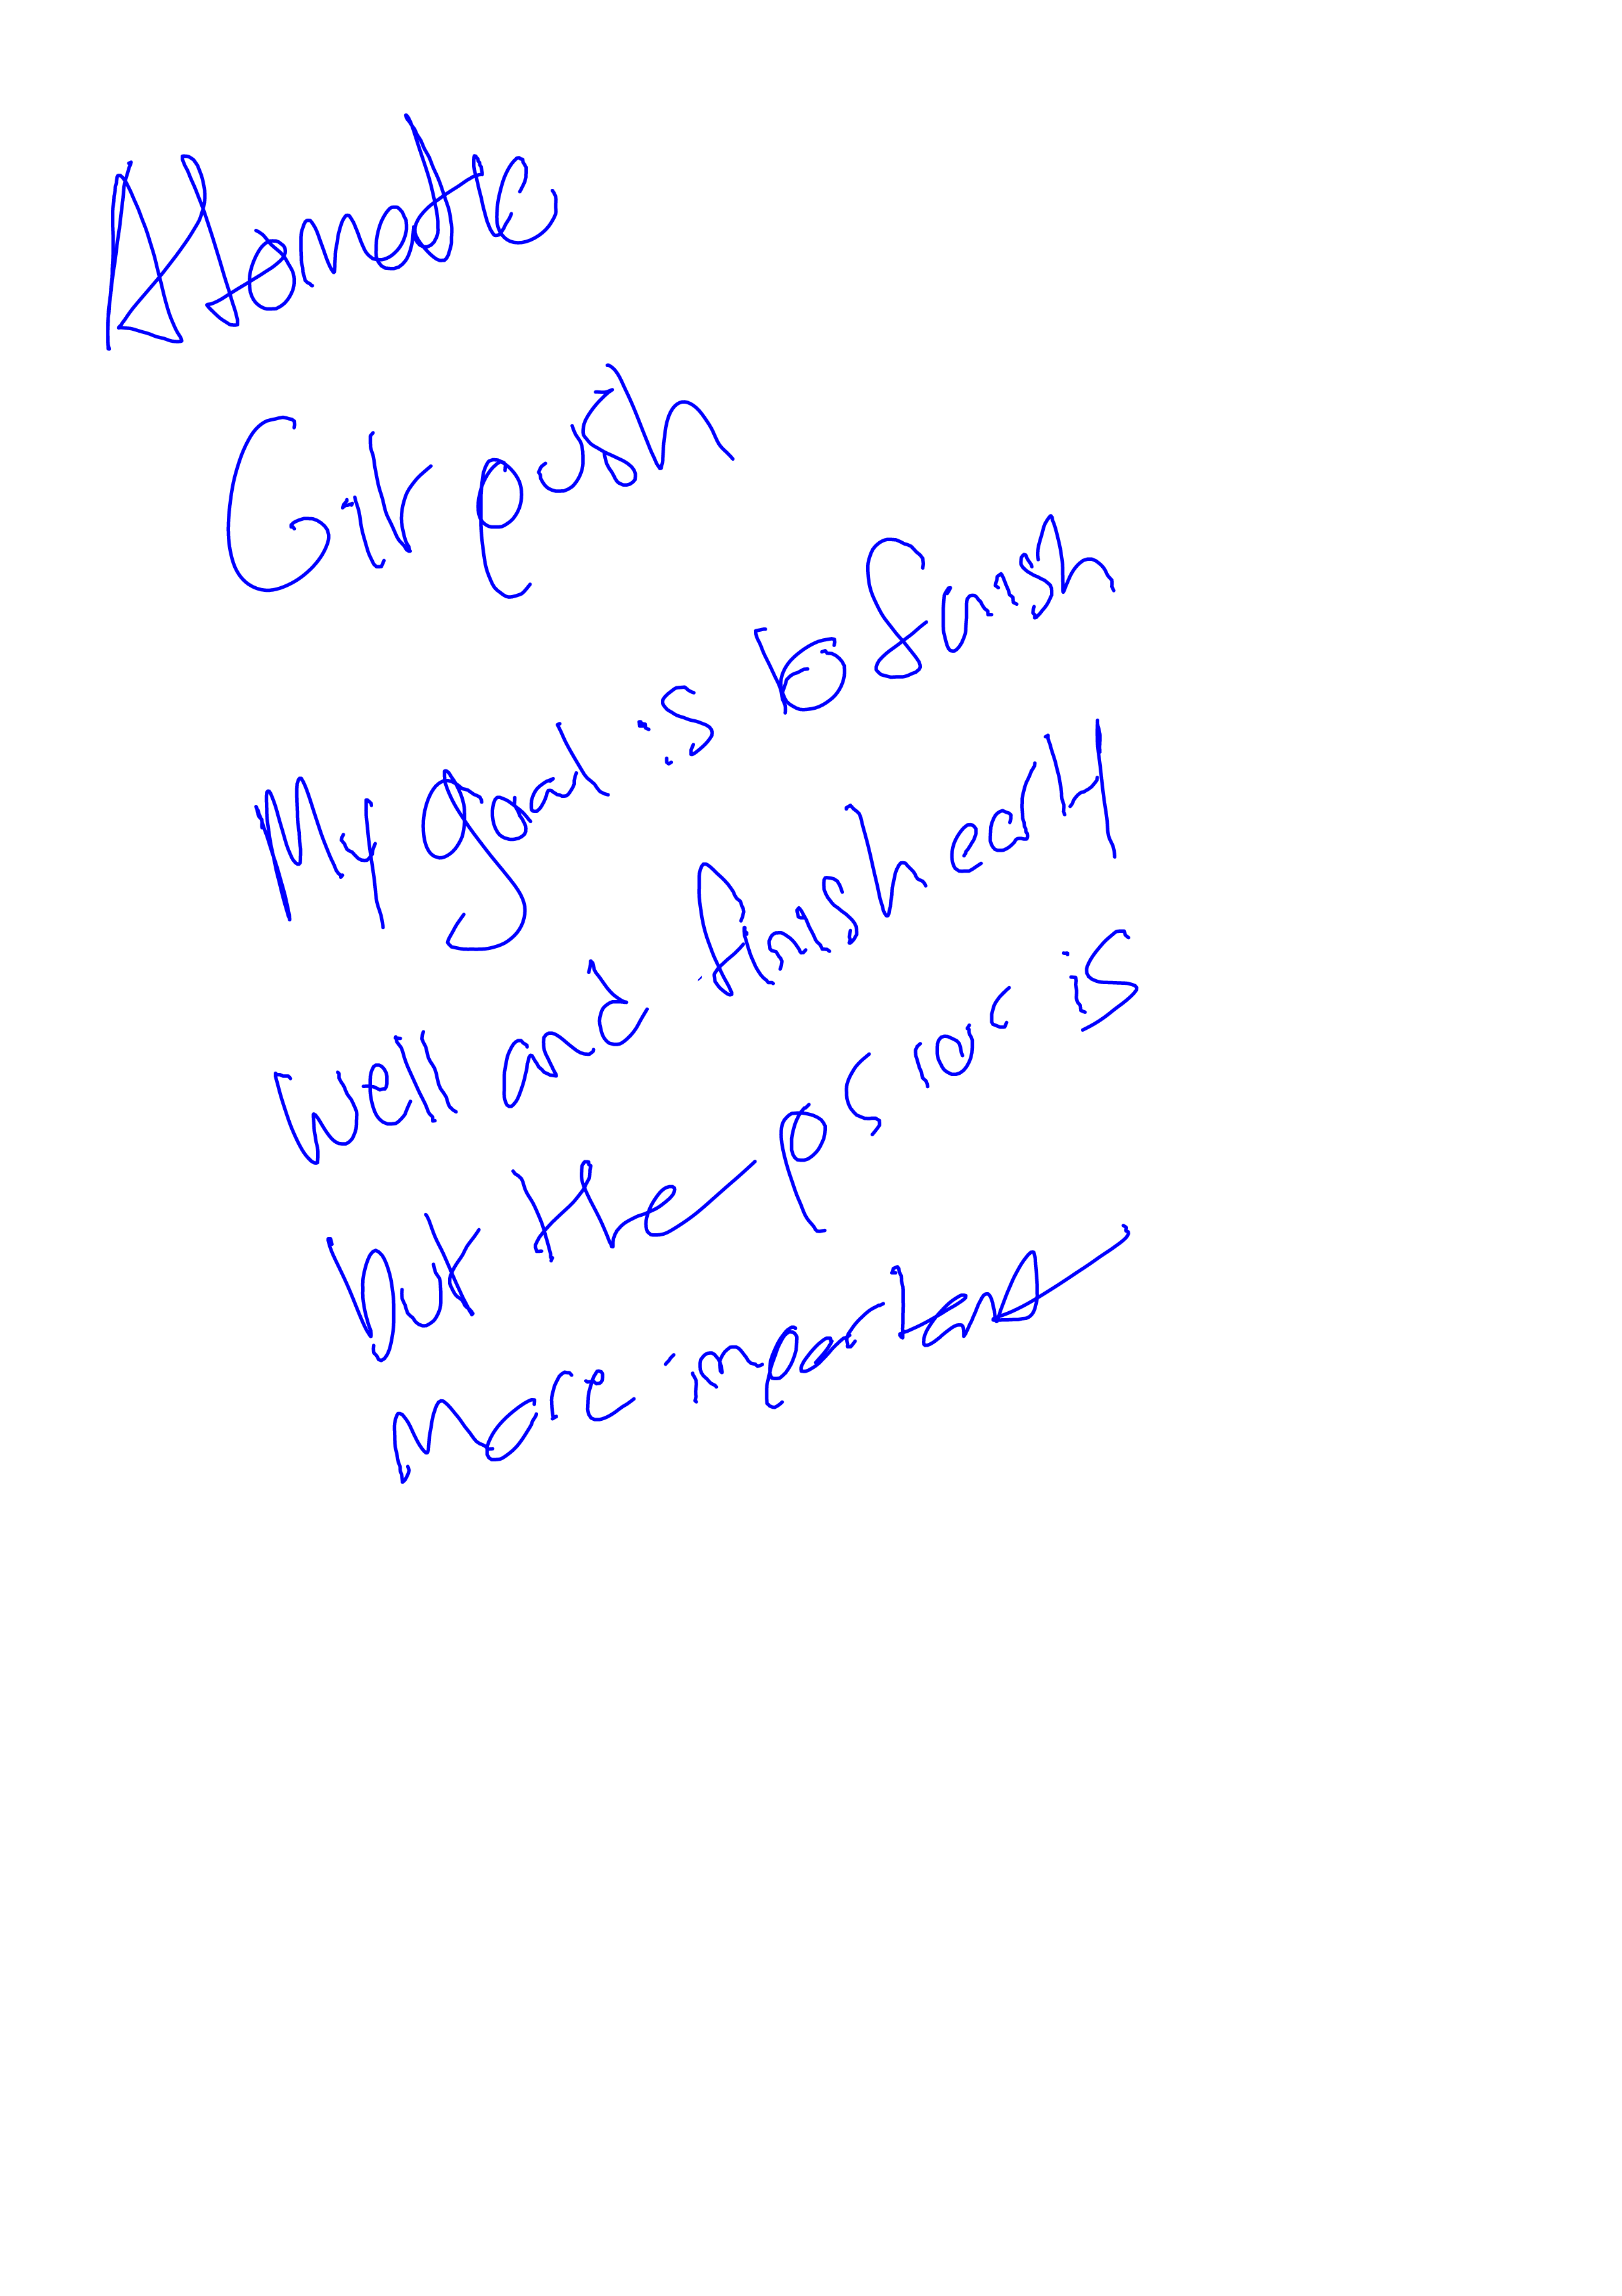 Atomate
Git push
My goal is to finish
Well and finish early
but the ps ror is
more important